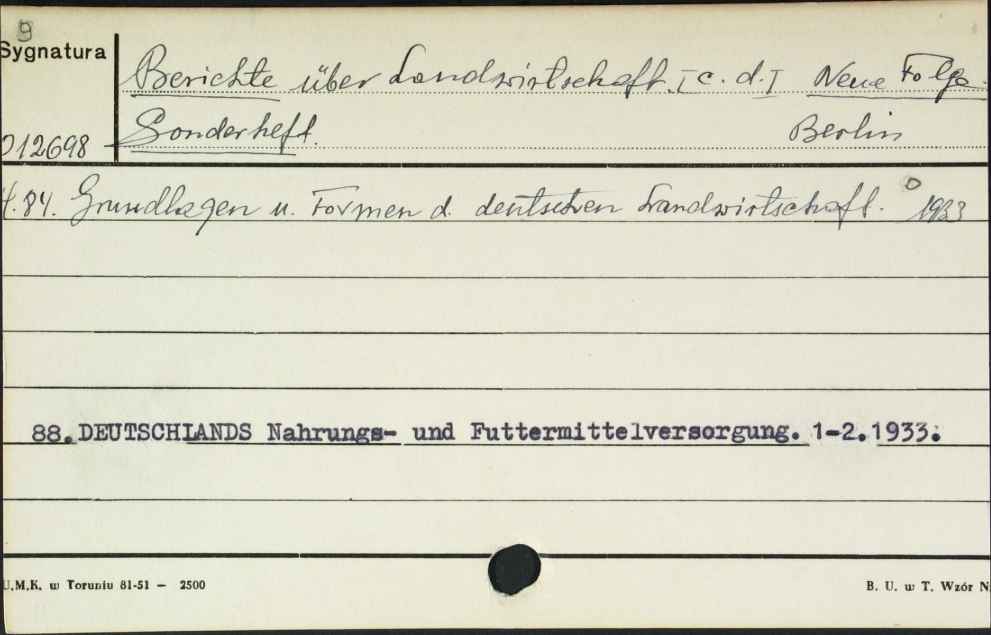 9
Sygnatura
Berichte über Landwirtschaft. [c. d.] Neue Folge.
012698 Sonderheft. Berlin
H. 84. Grundlagen u. Formen d. deutschen Landwirtschaft. 1933
88. DEUTSCHLANDS Nahrungs- und Futtermittelversorgung. 1-2. 1933.
U.M.K. w Toruniu 81-51 — 2500 B. U. w T. Wzór N